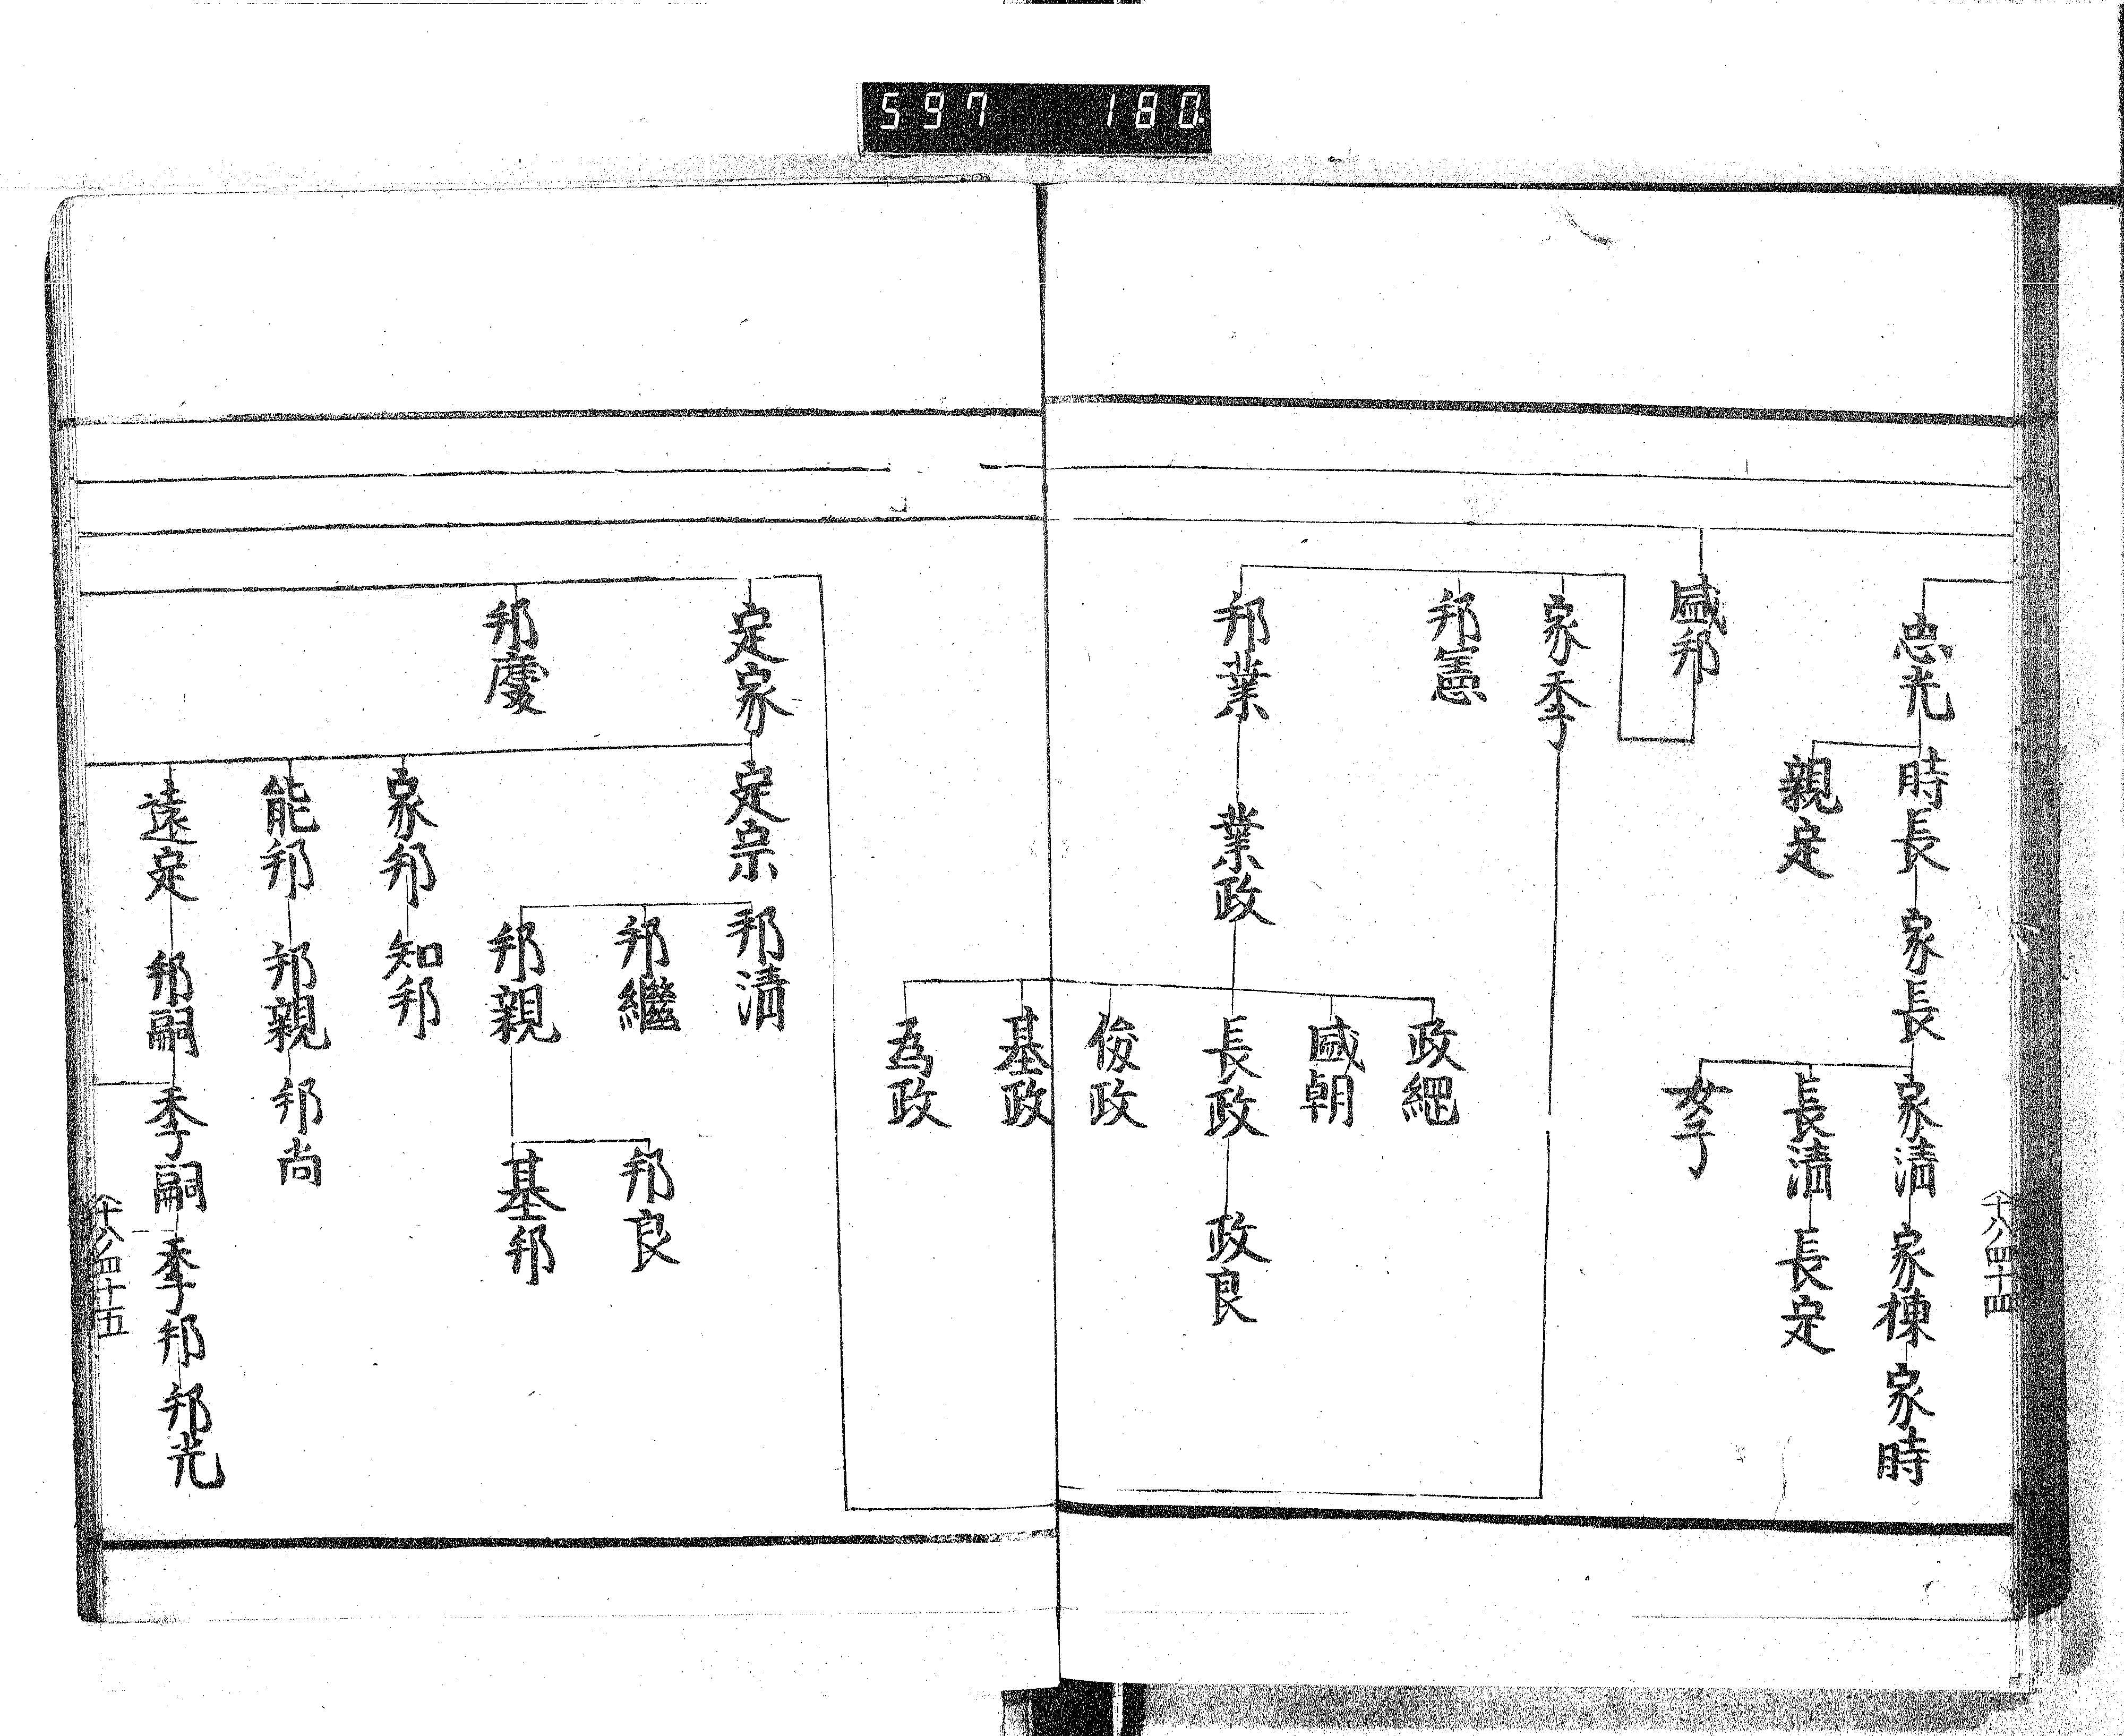 597 180
忠光
時長
家長
家清
家棟
家時
親定
長清
長定
女子
盛邦
家季
邦憲
邦業
業政
政綱
盛朝
長政
政良
俊政
基政
為政
定家
定宗
邦清
邦繼
邦親
邦良
基邦
邦慶
家邦
知邦
能邦
邦親
邦尚
遠定
邦嗣
季嗣
季邦
邦光
十八ノ四十四
十八ノ四十五